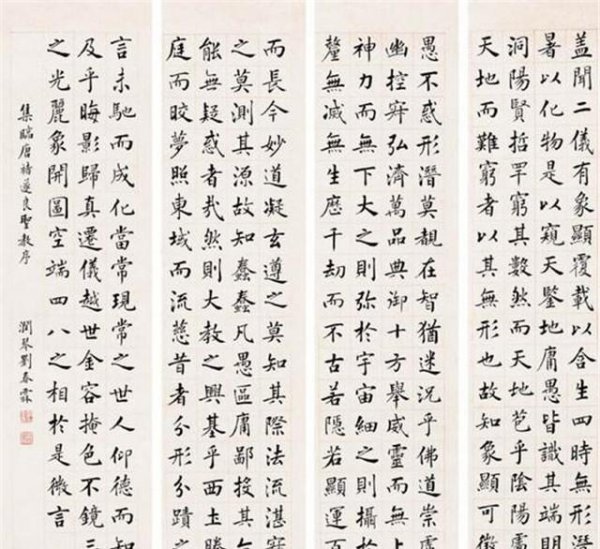 蓋聞二儀有象顯覆載以含生四時無形潛
暑以化物是以窺天鑒地庸愚皆識其端明
洞陽賢哲罕窮其數然而天地苞乎陰陽處
天地而難窮者以其無形也故知象顯可徵
愚不惑形潛莫覩在智猶迷況乎佛道崇虛
幽控寂弘濟萬品典御十方舉威靈而無上
神力而無下大之則彌於宇宙細之則攝於
釐無滅無生歷千劫而不古若隱若顯運百
而長今妙道凝玄遵之莫知其際法流湛寂
之莫測其源故知蠢蠢凡愚區庸鄙投其
能無疑惑者哉然則大教之興基乎西土騰
庭而皎夢照東域而流慈昔者分形分蹟之
言未馳而成化當常現常之世人仰德而知
及乎晦影歸真遷儀越世金容掩色不鏡三
之光麗象開圖空端四八之相於是微言
集臨唐褚遂良聖教序
潤琴劉春霖